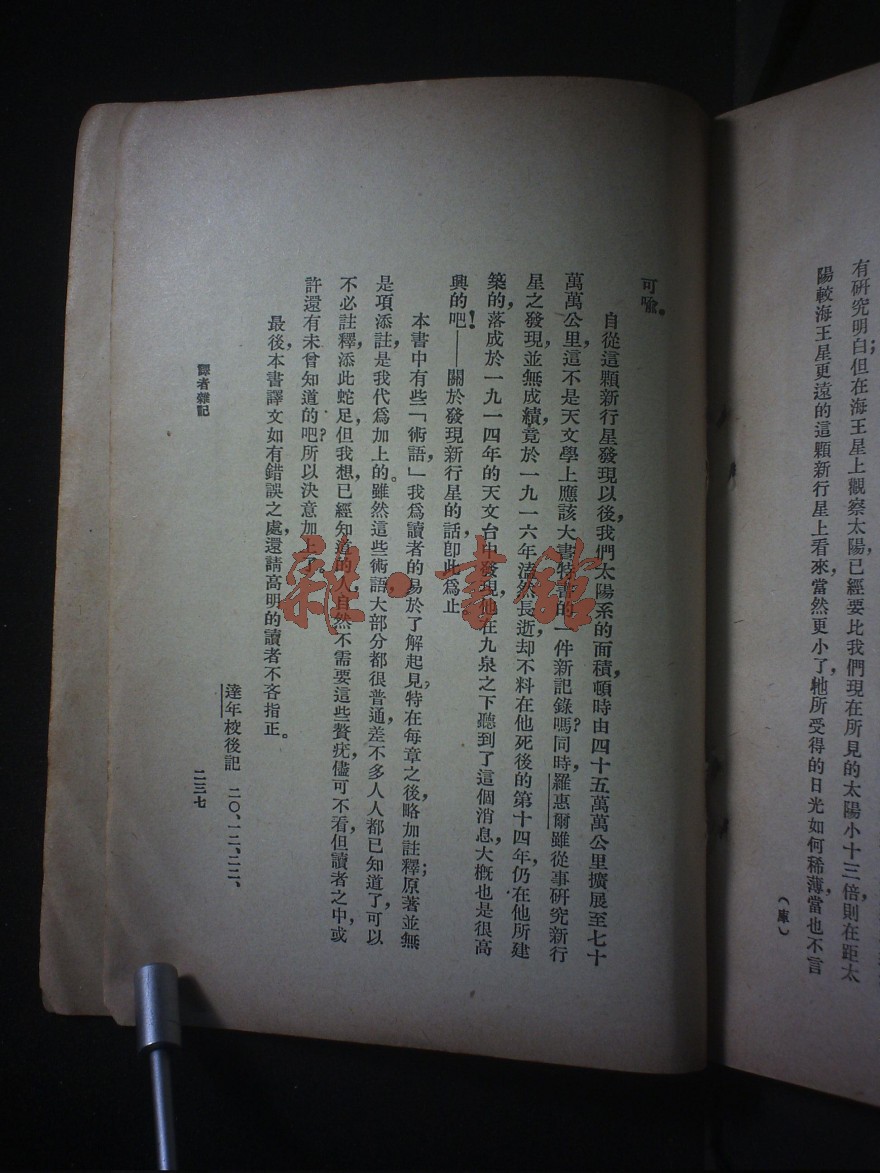 有研究明白;但在海王星上觀察太陽,已經要比我們現在所見的太陽小十三倍,則在距太
陽較海王星更遠的這顆新行星上看來,當然更小了,牠所受得的日光如何稀薄,當也不言
(庫)
可喻。
自從這顆新行星發現以後,我們太陽系的面積,頓時由四十五萬萬公里擴展至七十
萬萬公里,這不是天文學上應該大書特書的一件新記錄嗎?同時,羅惠爾雖從事研究新行
星之發現,並無成績,竟於一九一六年溘然長逝,却不料在他死後的第十四年,仍在他所建
築的,落成於一九一四年的天文台中發現,他在九泉之下聽到了這個消息,大概也是很高
興的吧!——關於發現新行星的話,卽此爲止。
本書中有些「術語」,我爲讀者的易於了解起見,特在每章之後,略加註釋;原著並無
是項添註,是我代爲加上的。雖然這些術語大部分都很普通,差不多人人都已知道了,可以
不必註釋,添此蛇足,但我想,已經知道的人,自然不需要這些贅疣,儘可不看,但讀者之中,或
許還有未曾知道的吧?所以決意加上了。
最後,本書譯文如有錯誤之處,還請高明的讀者不吝指正。
達年校後記 二〇、一二、二二、
譯者雜記
二三七
雜·書館